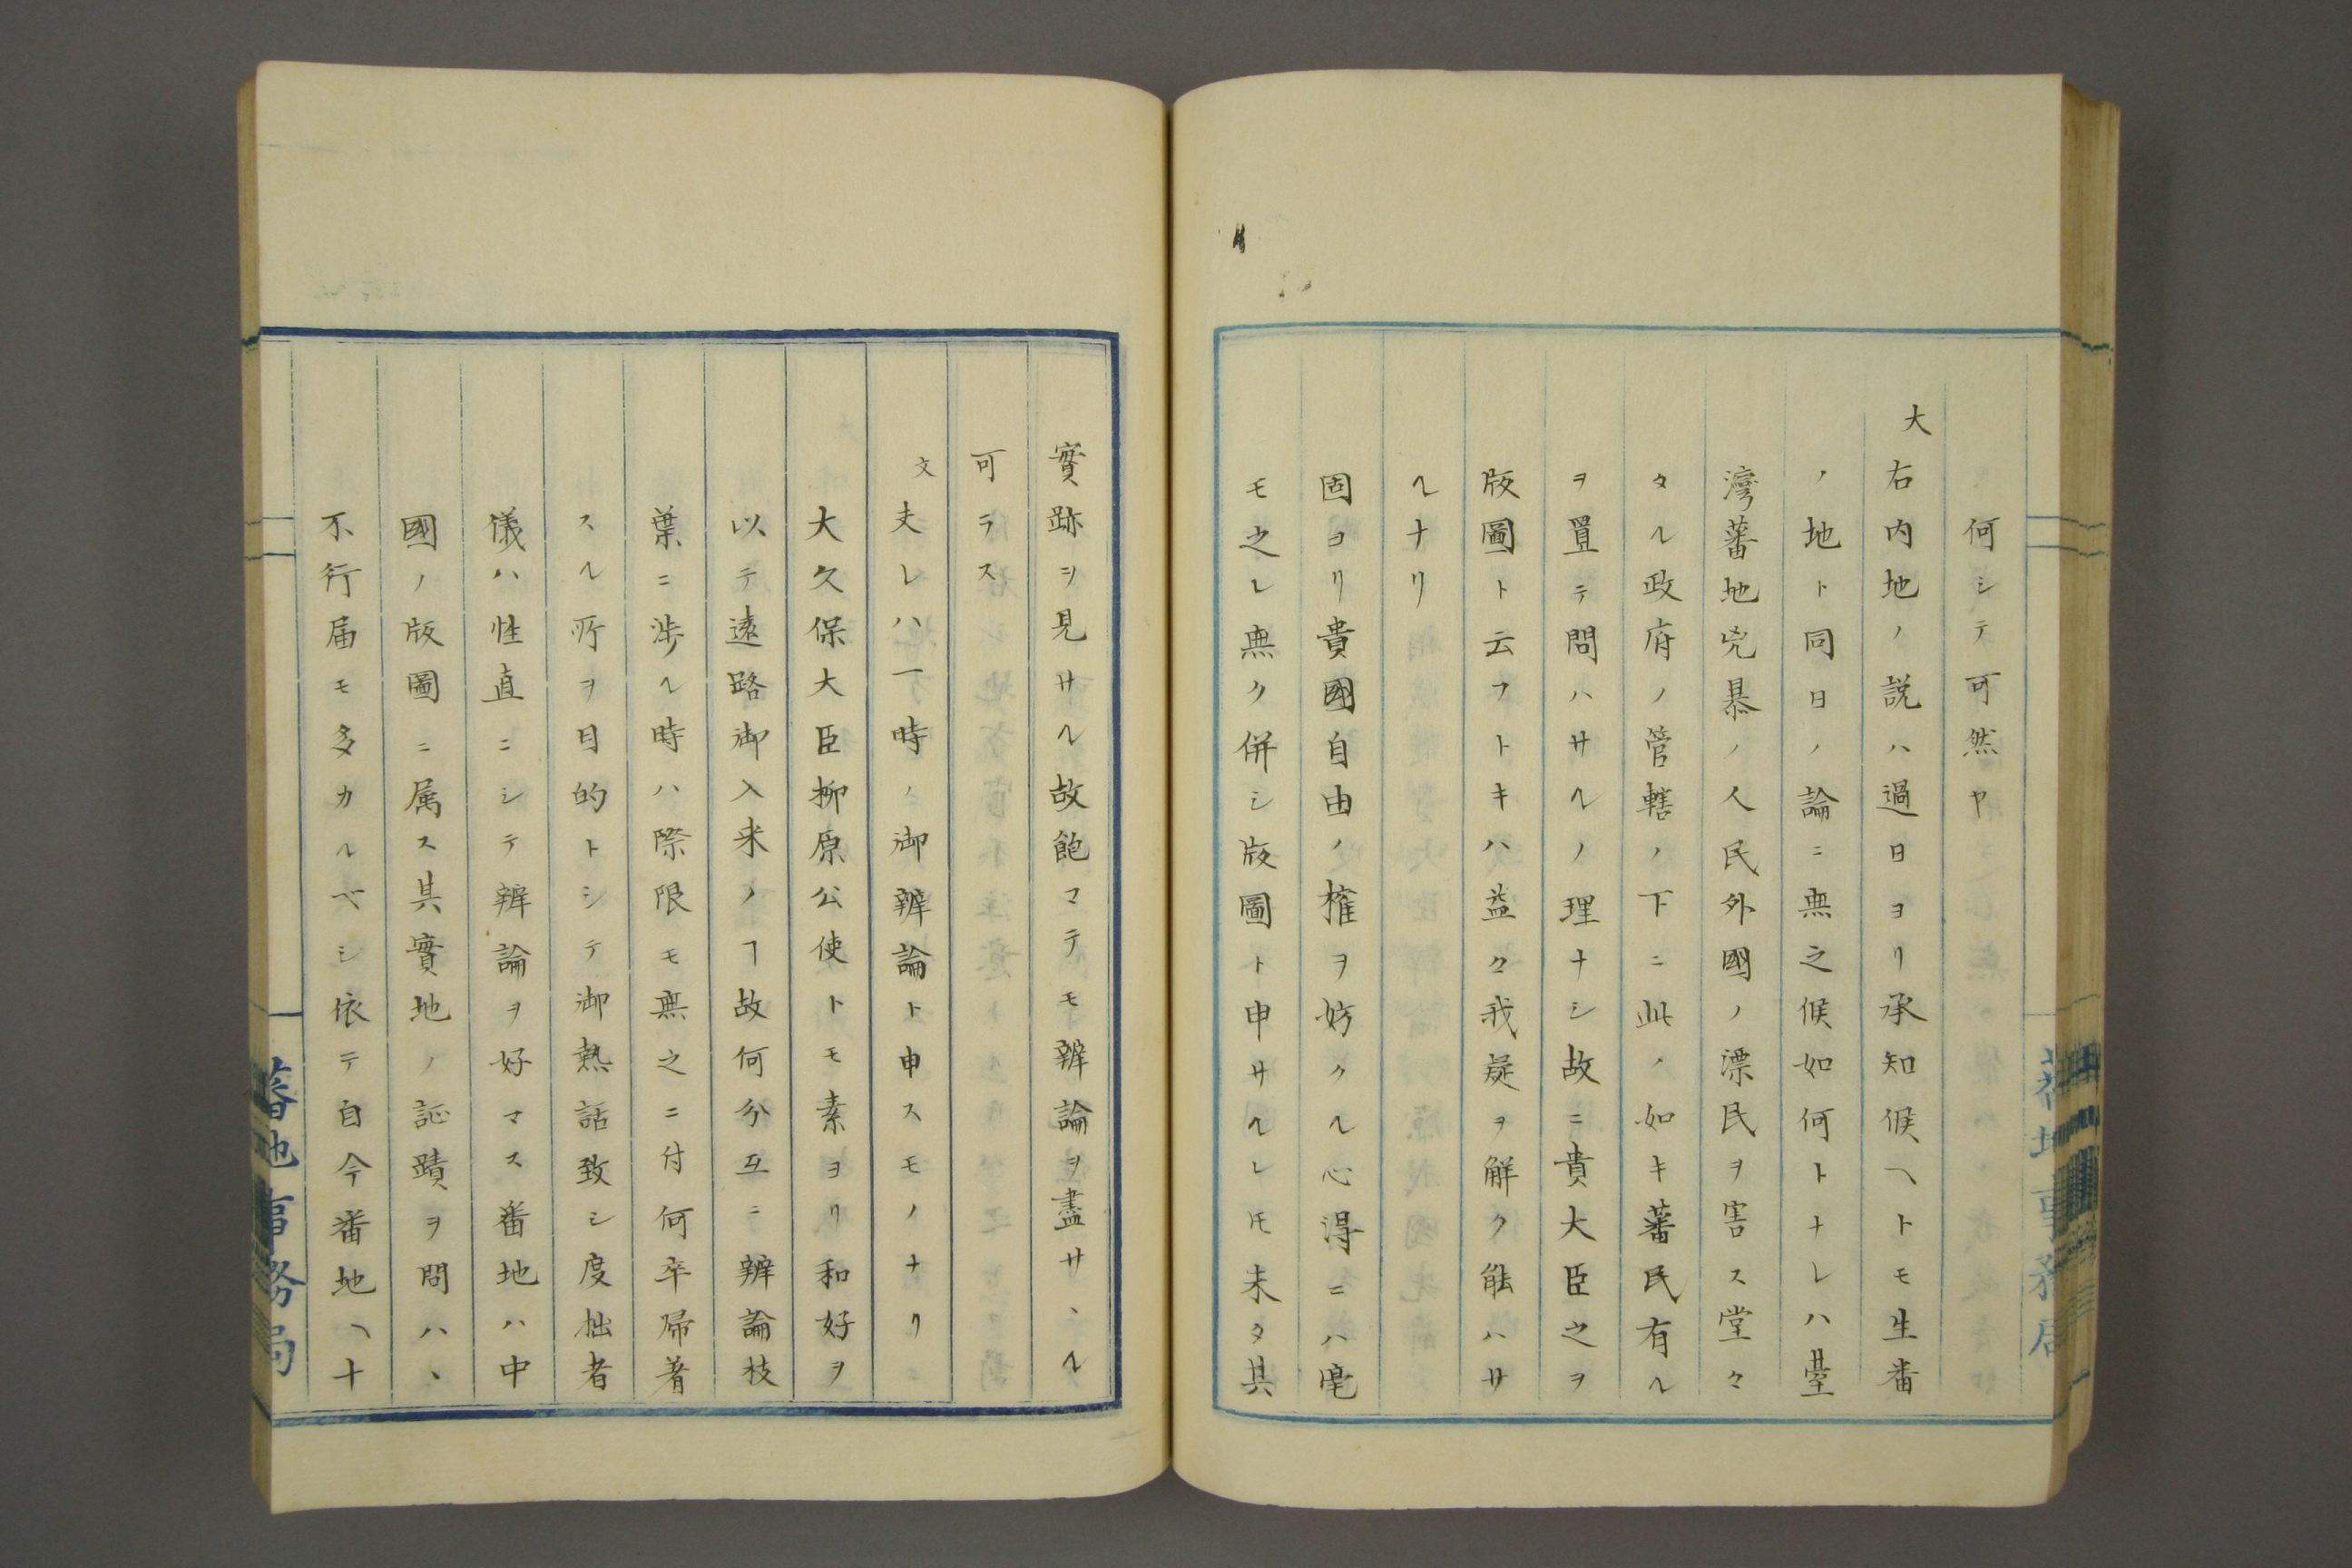 何シテ可然ヤ
大
右内地ノ説ハ過日ヨリ承知候ヘトモ生番
ノ地ト同日ノ論ニ無之候如何トナレハ臺
灣蕃地兇暴ノ人民外國ノ漂民ヲ害ス堂々
タル政府ノ管轄ノ下ニ此ノ如キ蕃民有ル
ヲ置テ問ハサルノ理ナシ故ニ貴大臣之ヲ
版圖ト云フトキハ益々我疑ヲ解ク能ハサ
ルナリ
固ヨリ貴國自由ノ権ヲ妨クル心得ニハ毫
モ之レ無ク併シ版圖ト申サルレ𪜈未タ其
實跡ヲ見サル故飽マテモ辨論ヲ盡サヽル
可ラス
文
夫レハ一時ノ御辨論ト申スモノナリ
大久保大臣柳原公使トモ素ヨリ和好ヲ
以テ遠路御入来ノヿ故何分互ニ辨論枝
葉ニ渉ル時ハ際限モ無之ニ付何卒帰着
スル所ヲ目的トシテ御熟話致シ度拙者
儀ハ性直ニシテ辨論ヲ好マス番地ハ中
國ノ版圖ニ属ス其實地ノ証蹟ヲ問ハヽ
不行届モ多カルベシ依テ自今番地ヘ十
蕃地事務局
蕃地事務局